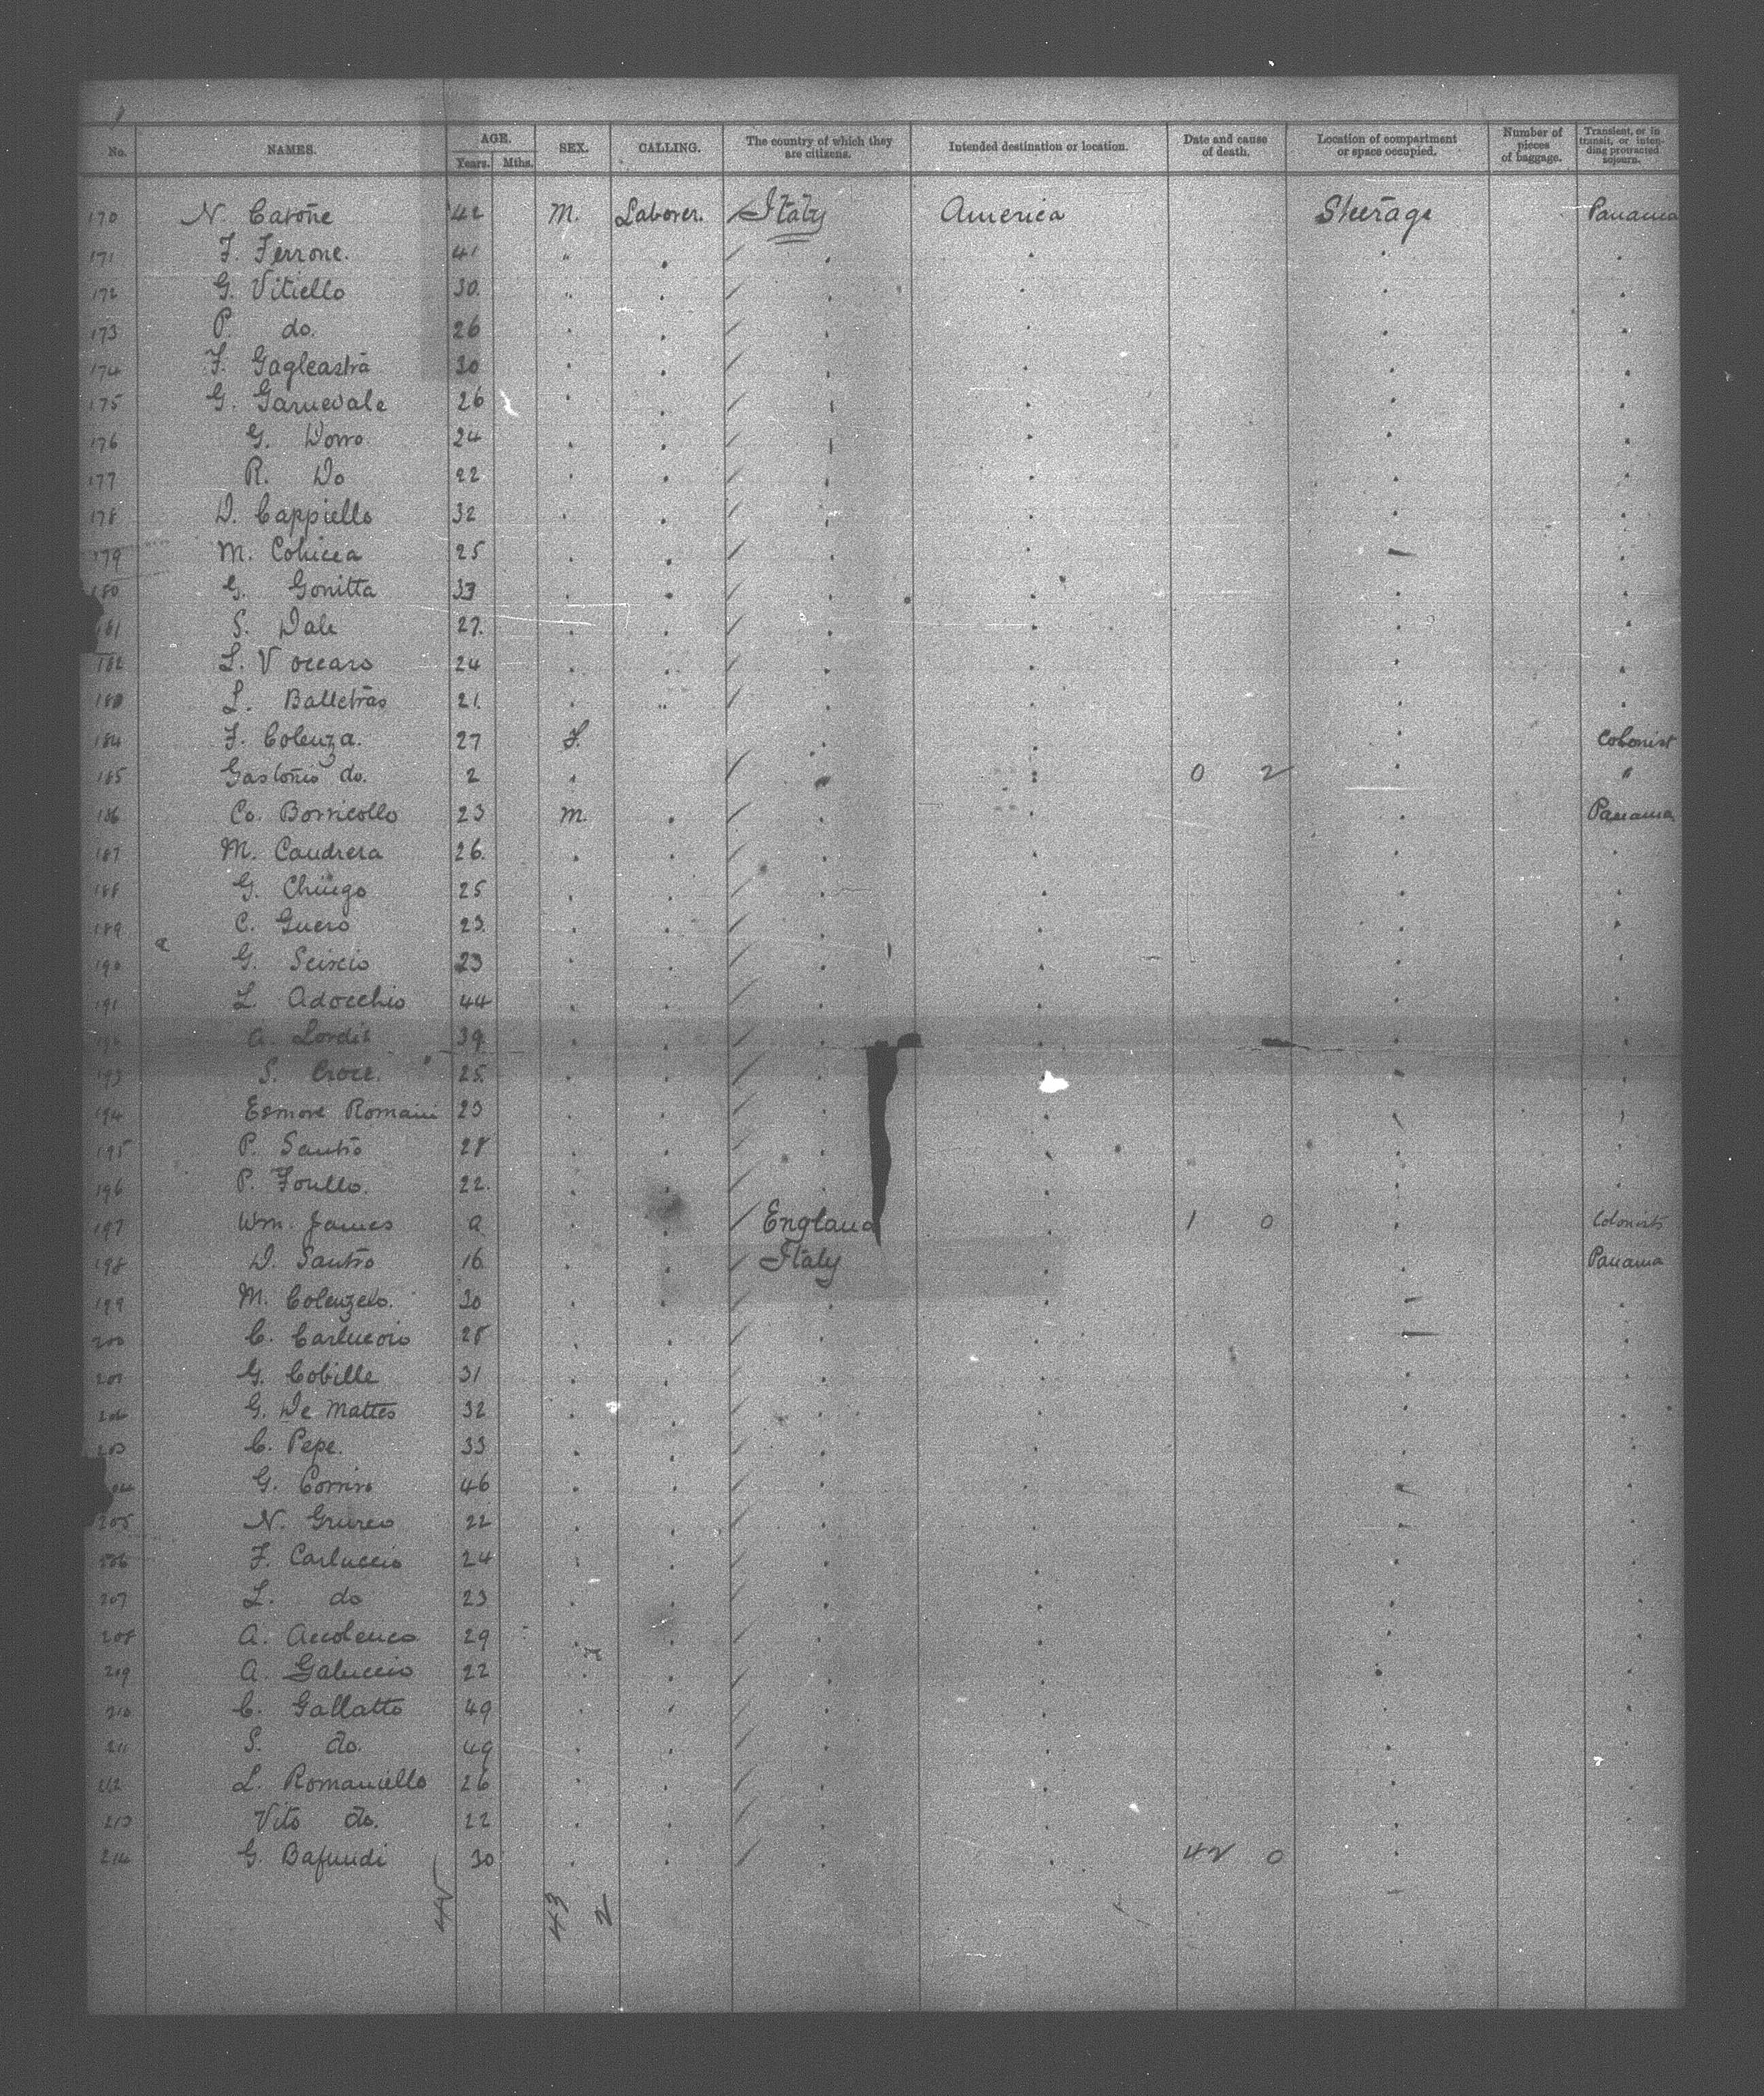 No. NAMES. AGE. Years. Mths. SEX. CALLING. The country of which they are citizens. Intended destination or location. Date and cause of death. Location of compartment or space occupied. Number of pieces of baggage. Transient, or in transit, or intending protracted sojourn.
170 N. Carone 42 M. Laborer. Italy America Steerage Panama
171 F. Ferrone. 41 "
172 G. Vitiello 30 "
173 P. do. 26
174 F. Gagleastra 30
175 G. Garnevale 26
176 G. Dorro 24
177 R. Do 22
178 D. Cappiello 32
179 M. Colucca 25
180 G. Gonitta 33
181 S. Dale 27.
182 L. Voccaro 24
183 L. Balletras 21.
184 F. Colenza. 27 F. Colonist
185 Gastonio do. 2 0 2 "
186 Co. Borricollo 23 M. Panama
187 M. Caudrera 26.
188 G. Chiugo 25
189 C. Guero 23.
190 G. Scircio 23
191 L. Adocchio 44
192 A. Lordit 39
193 S. Croce. 25.
194 Esmore Romani 23
195 P. Santro 28
196 P. Forllo. 22.
197 Wm. James a England 1 0 Colonists
198 D. Santro 16 Italy Panama
199 M. Colenzelo. 30
200 C. Carluccio 28
201 G. Cobille 31
202 G. De Mattes 32
203 C. Pepe. 33
204 G. Corriro 46
205 N. Grureo 22
206 F. Carluccio 24
207 L. do 23
208 A. Accolenco 29
209 A. Galuccio 22
210 C. Gallatto 49
211 S. do. 49
212 L. Romaniello 26
213 Vito do. 22
214 G. Bafundi 30 42 0
45 43 2